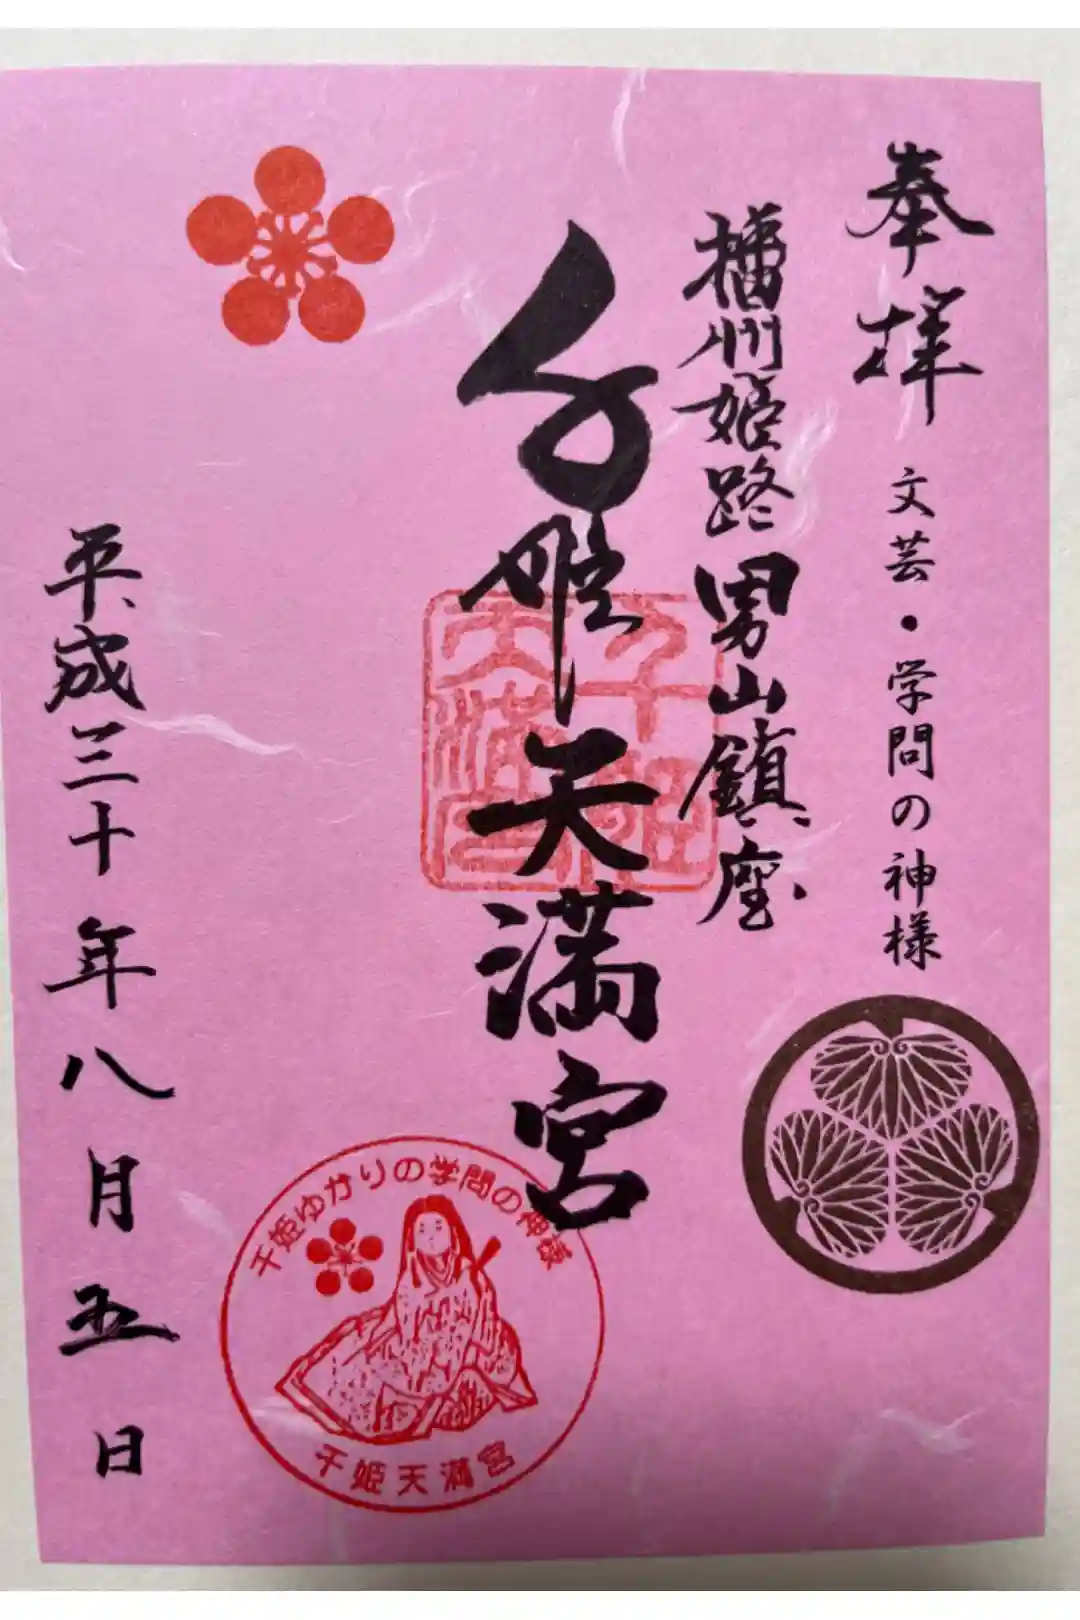 奉拝
文芸・学問の神様
播州姫路男山鎮座
千姫天満宮
千姫天満宮
千姫ゆかりの学問の神様
千姫天満宮
平成三十年八月五日